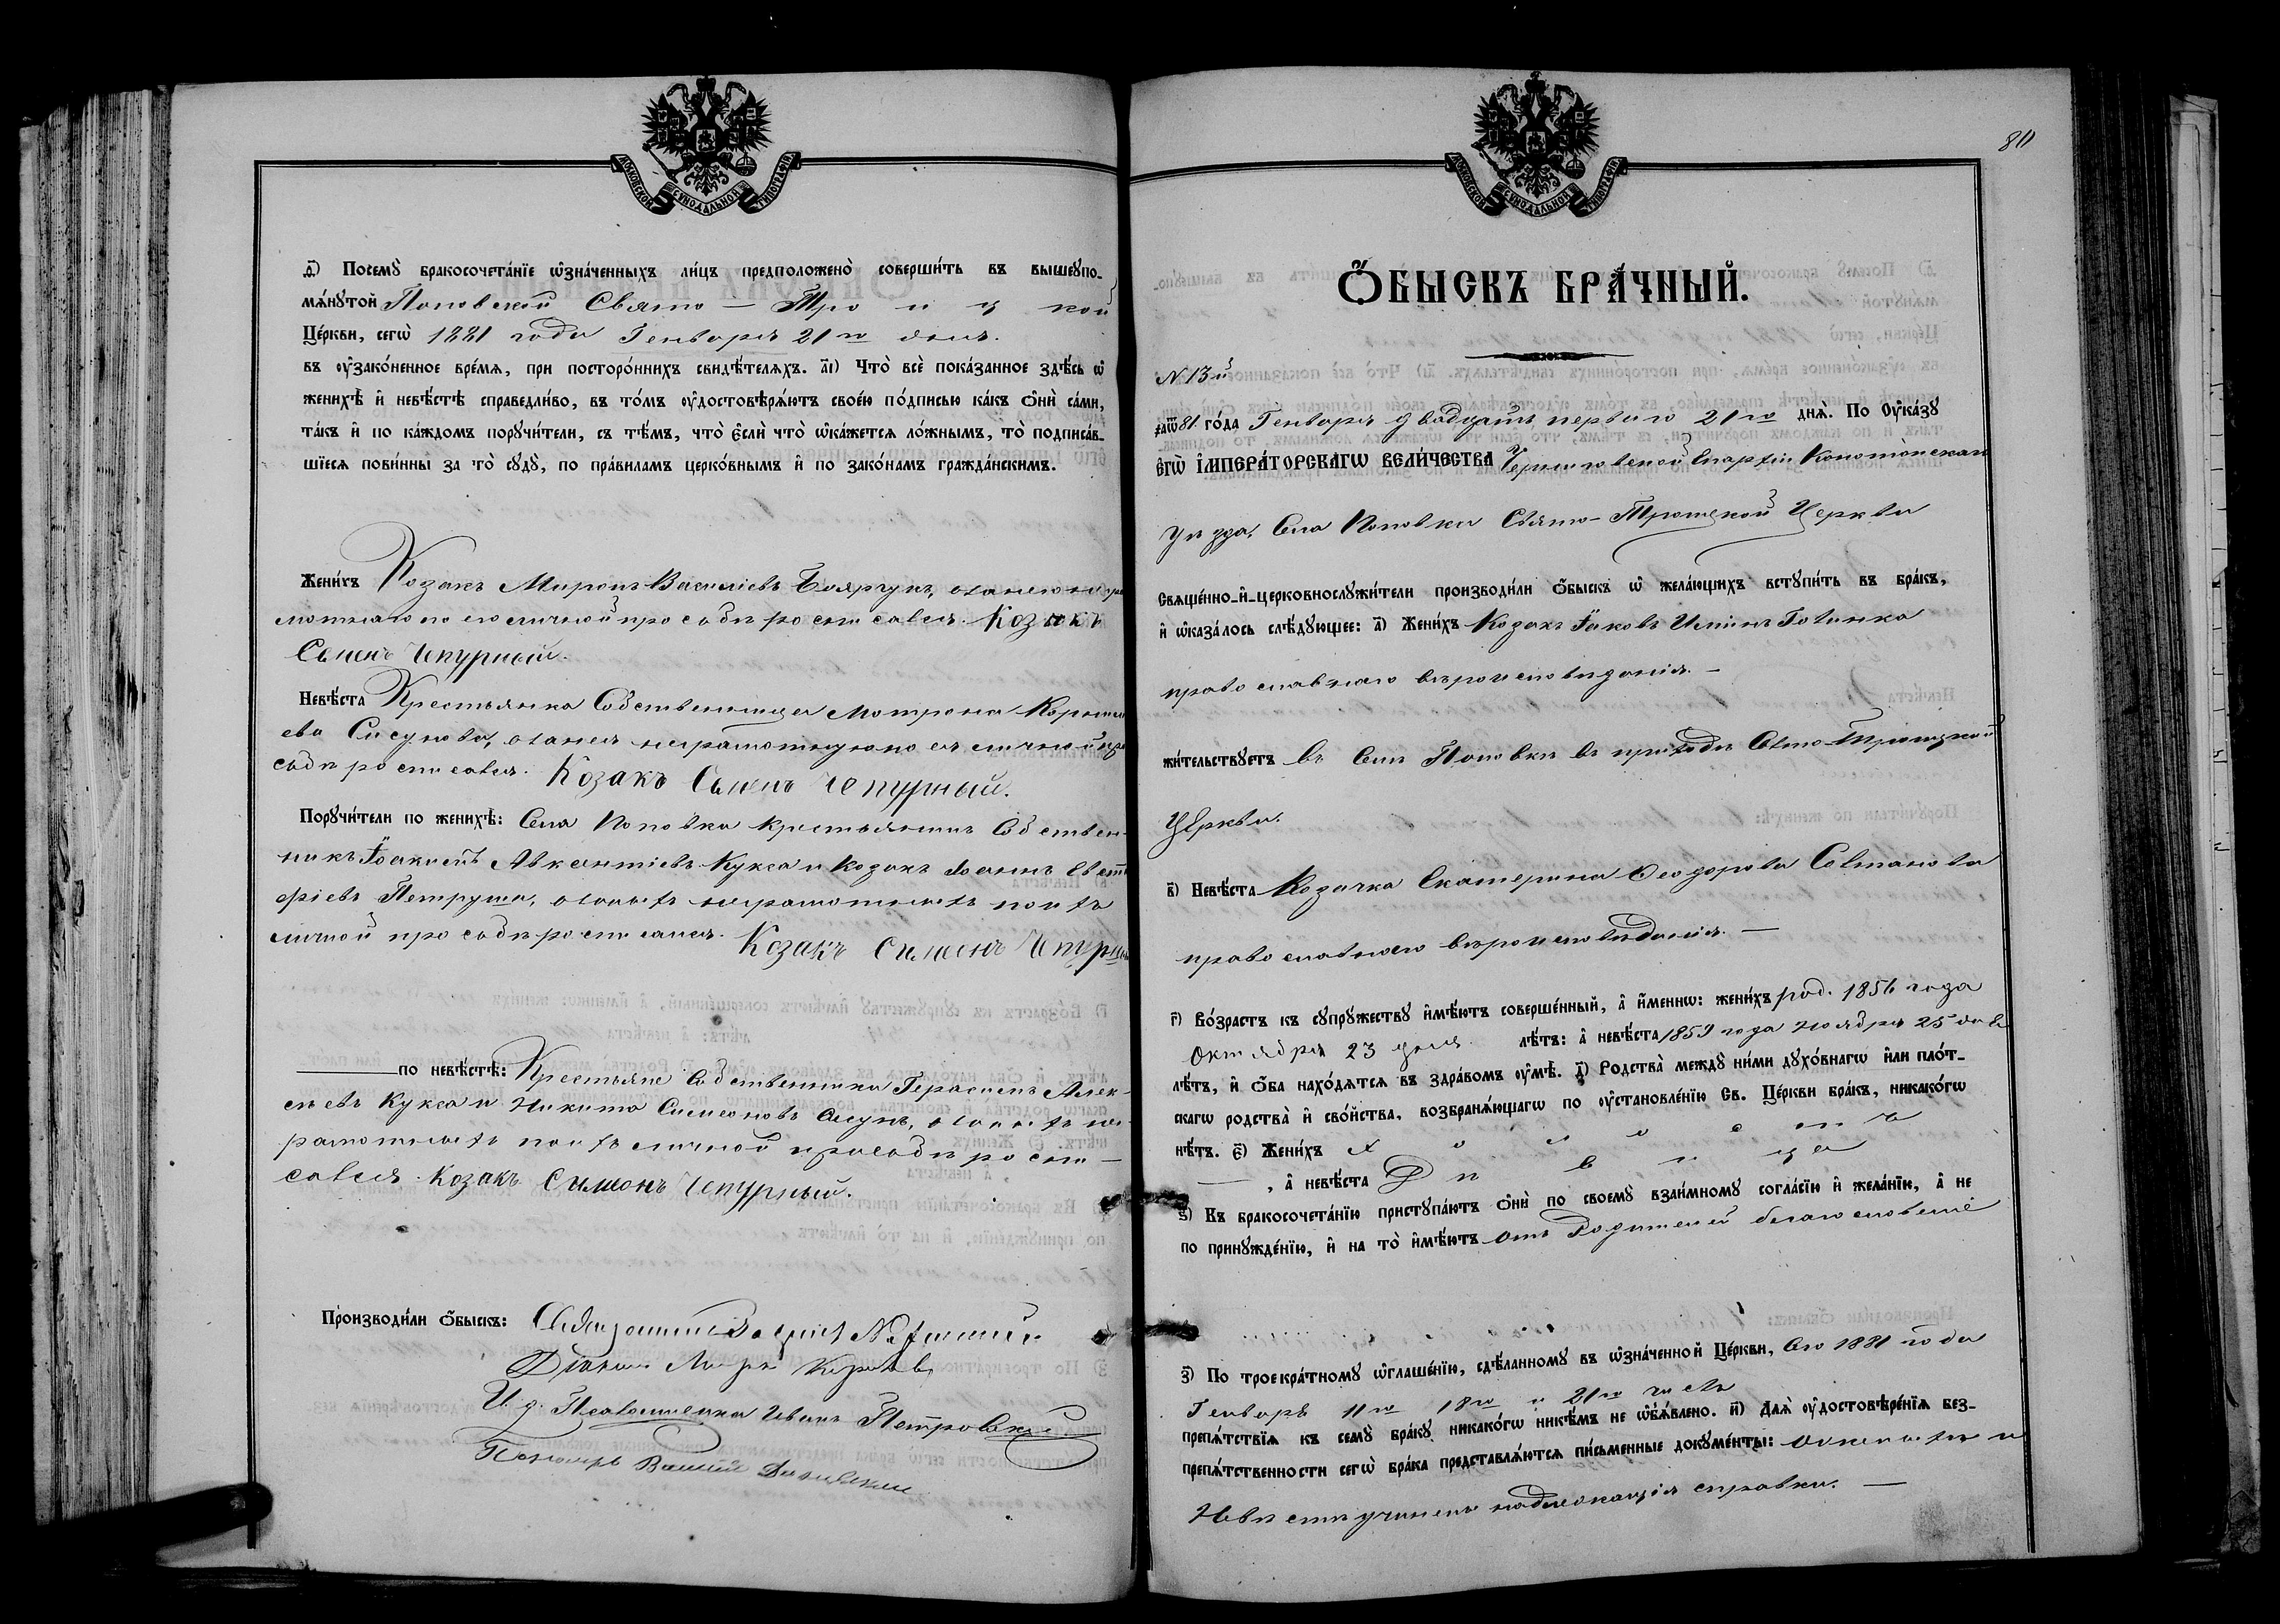 МОСКОВСКОЙ СѴНОДАЛЬНОЙ ТИПОГРАФІИ
д҃) Посемꙋ̀ бракосочета́нїе ѡ҆зна́ченныхъ ли́цъ предположено̀ соверши́ть въ вышеꙋпо-
мѧ́нꙋтой Поповской Свято – Троицкой
Це́ркви, сегѡ̀ 1881 года Генваря 21го дня.
въ ᲂу҆зако́ненное вре́мѧ, при посторо́ннихъ свидѣ́телѧхъ. а҃і) Что̀ всѐ пока́занное здѣ́сь ѡ҆
женихѣ̀ и҆ невѣ́стѣ справедли́во, въ то́мъ ᲂу҆достовѣрѧ́ютъ свое́ю по́дписью ка́къ ѻ҆нѝ са́ми,
та́къ и҆ по ка́ждомъ порꙋчи́тели, съ тѣ́мъ, что̀ є҆слѝ что̀ ѡ҆ка́жется ло́жнымъ, то̀ подписа́в-
шїесѧ пови́нны за то̀ сꙋдꙋ̀, по пра́виламъ церко́внымъ и҆ по зако́намъ гражда́нскимъ.
Жени́хъ Козакъ Миронъ Василіевъ Боярчукъ, а за него негра
мотнаго по его личной прозбѣ росписався. Козакъ
Семенъ Чепурный.
Невѣ́ста Крестьянка Собственница Мотрона Корнил
ева Сисунова, а за нея неграмотную по ея личной про
сьбѣ росписався. Козакъ Семенъ Чепурный.
Порꙋчи́тели по женихѣ̀: Села Поповки крестьянинъ Собствен-
никъ Іоакимъ Авксентіевъ Кукса и козакъ Іоаннъ Евста
фіевъ Петруша, а за нихъ неграмотныхъ по ихъ
личной прозбѣ росписался. Козакъ Симонъ Чепурны
по невѣ́стѣ: Крестьяне Собственники Герасимъ Алек-
сѣевъ Кукса и Никита Симеоновъ Сисунъ, а за нихъ не-
грамотныхъ по ихъ личной прозьбѣ роспи-
сався. Козакъ Симонъ Чепурный.
Производи́ли ѻ҆́быскъ: Священникъ
Діаконъ
И. д. Псаломщика Иванъ Петровскій
Пономарь Василій
МОСКОВСКОЙ СѴНОДАЛЬНОЙ ТИПОГРАФІИ
80
Ѻ҆́БЫСКЪ БРА́ЧНЫЙ.
N 13й
҂аѿ81. го́да Генваря двадцать перваго 21го днѧ̀. По Оу҆ка́зꙋ
Є҆гѡ̀ І҆мпера́торскагѡ Вели́чества Черниговской Епархіи Конотопскаго
Уѣзда, Села Поповки Свято-Троицкой Церкви
Свѧще́нно-и҆-церковнослꙋжи́тели производи́ли ѻ҆́быскъ ѡ҆ жела́ющихъ встꙋпи́ть въ бра́къ,
и҆ ѡ҆каза́лось слѣ́дꙋющее: а҃) Жени́хъ Козакъ Іаковъ Ильинъ Говинка
православнаго вѣроисповѣданія. –
жи́тельствꙋетъ въ Селѣ Поповкѣ въ приходѣ Свято-Троицкой
Церкви.
в҃) Невѣ́ста Козачка Екатерина Феодорова Савтанова
православнаго вѣроисповѣданія. –
г҃) Во́зрастъ къ сꙋпрꙋ́жествꙋ и҆мѣ́ютъ соверше́нный, а҆ и҆́меннѡ: жени́хъ род. 1856 года
Октября 23 дня. лѣ́тъ: а҆ невѣ́ста 1859 года ноября 25 дня
лѣ́тъ, и҆ ѻ҆́ба нахо́дѧтсѧ въ здра́вомъ ᲂу҆мѣ̀. д҃) Родства̀ междꙋ̀ ни́ми дꙋхо́внагѡ и҆лѝ пло́т-
скагѡ родства̀ и҆ сво́йства, возбранѧ́ющагѡ по ᲂу҆становле́нїю Св. Це́ркви бра́къ, никако́гѡ
нѣ́тъ. є҃) Жени́хъ холостъ
, а҆ невѣ́ста Дѣвица
ѕ҃) Къ бракосочета́нїю пристꙋпа́ютъ ѻ҆нѝ по своемꙋ̀ взаи́мномꙋ согла́сїю и҆ жела́нїю, а҆ не
по принꙋжде́нїю, и҆ на то̀ и҆мѣ́ютъ отъ Родителей благословеніе
з҃) По троекра́тномꙋ ѡ҆глаше́нїю, сдѣ́ланномꙋ въ ѡ҆зна́ченной Це́ркви, Сего 1881 года
Генваря 11го 18го и 21го числъ
препѧ́тствїѧ къ семꙋ̀ бра́кꙋ никако́гѡ никѣ́мъ не ѡ҆б̾ѧ́влено. и҃) Длѧ̀ ᲂу҆достовѣре́нїѧ без-
препѧ́тственности сегѡ̀ бра́ка представлѧ́ютсѧ пи́сьменные докꙋме́нты: о женихѣ и
Невѣстѣ учинены надлежащія справки. –